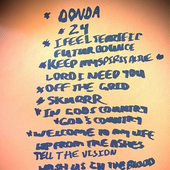 * DONDA
* 24
* I FEEL TERRIFIC
FUTUR BOUNCE
* KEEP MY SPIRIT ALIVE
LORD I NEED YOU
* OFF THE GRID
* SKURRR
* IN GODS COUNTRY
* GOD'S COUNTRY
* WELCOME TO MY LIFE
UP FROM THE ASHES
TELL THE VISION
WASH US IN THE BLOOD